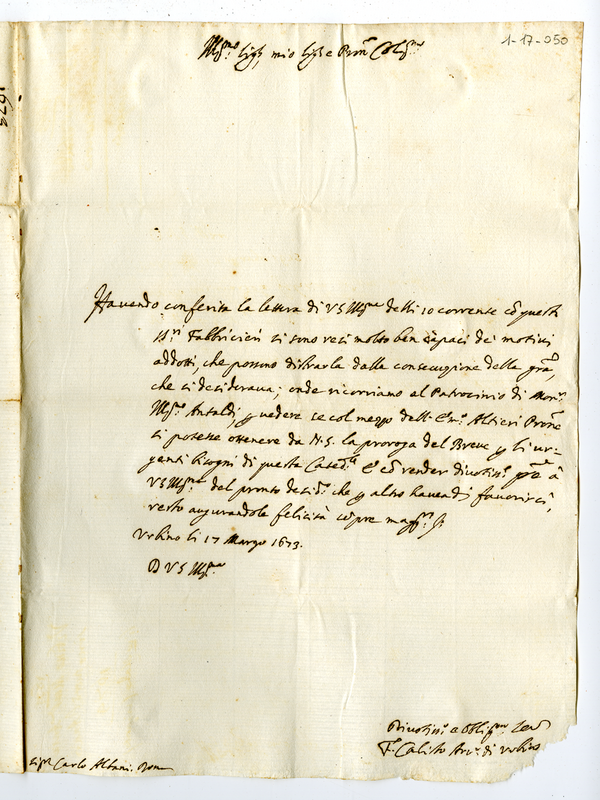 1-17-050
Ill.mo Sig.r mio Sig.r e Pron Col.mo
1673
Havendo conferita la lettera di VS Ill.ma delli 10 corrente cō questi
SS.ri Fabbricieri si sono resi molto ben capaci de' motivi
addotti, che possono distrarla dalla consecuzione della gra,
che si desiderava; onde ricorriamo al Patrocinio di Mon.r
Ill.mo Antaldi, p vedere se col mezzo dell' Em.o Altieri Prone
si potesse ottenere da N.S. la proroga del Breve p li ur-
genti bisogni di questa Cated.le E cō render divotiss.e gre à
VS Ill.ma del pronto desid.o che p altro havendi favorirci,
resto augurandole felicità sempre magg.ri
Urbino li 17 Marzo 1673.
D VS Ill.ma
Divotiss.o e Obblig.mo Ser
F. Calisto Arc.o di Urbino
Sig.r Carlo Albani. Roma